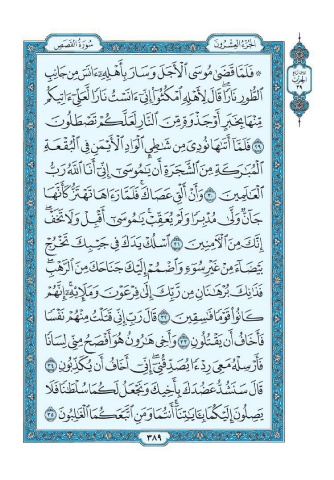 الجزء العشرون
سورة القصص
۞ فَلَمَّا قَضَىٰ مُوسَى ٱلْأَجَلَ وَسَارَ بِأَهْلِهِۦٓ ءَانَسَ مِن جَانِبِ
ٱلطُّورِ نَارًا قَالَ لِأَهْلِهِ ٱمْكُثُوٓا۟ إِنِّىٓ ءَانَسْتُ نَارًا لَّعَلِّىٓ ءَاتِيكُم
مِّنْهَا بِخَبَرٍ أَوْ جَذْوَةٍ مِّنَ ٱلنَّارِ لَعَلَّكُمْ تَصْطَلُونَ
٢٩ فَلَمَّآ أَتَىٰهَا نُودِىَ مِن شَٰطِئِ ٱلْوَادِ ٱلْأَيْمَنِ فِى ٱلْبُقْعَةِ
ٱلْمُبَٰرَكَةِ مِنَ ٱلشَّجَرَةِ أَن يَٰمُوسَىٰٓ إِنِّىٓ أَنَا ٱللَّهُ رَبُّ
ٱلْعَٰلَمِينَ ٣٠ وَأَنْ أَلْقِ عَصَاكَ فَلَمَّا رَءَاهَا تَهْتَزُّ كَأَنَّهَا
جَآنٌّ وَلَّىٰ مُدْبِرًا وَلَمْ يُعَقِّبْ يَٰمُوسَىٰٓ أَقْبِلْ وَلَا تَخَفْ
إِنَّكَ مِنَ ٱلْءَامِنِينَ ٣١ ٱسْلُكْ يَدَكَ فِى جَيْبِكَ تَخْرُجْ
بَيْضَآءَ مِنْ غَيْرِ سُوٓءٍ وَٱضْمُمْ إِلَيْكَ جَنَاحَكَ مِنَ ٱلرَّهْبِ
فَذَٰنِكَ بُرْهَٰنَانِ مِن رَّبِّكَ إِلَىٰ فِرْعَوْنَ وَمَلَإِي۟هِۦٓ إِنَّهُمْ
كَانُوا۟ قَوْمًا فَٰسِقِينَ ٣٢ قَالَ رَبِّ إِنِّى قَتَلْتُ مِنْهُمْ نَفْسًا
فَأَخَافُ أَن يَقْتُلُونِ ٣٣ وَأَخِى هَٰرُونُ هُوَ أَفْصَحُ مِنِّى لِسَانًا
فَأَرْسِلْهُ مَعِىَ رِدْءًا يُصَدِّقُنِىٓ إِنِّىٓ أَخَافُ أَن يُكَذِّبُونِ ٣٤
قَالَ سَنَشُدُّ عَضُدَكَ بِأَخِيكَ وَنَجْعَلُ لَكُمَا سُلْطَٰنًا فَلَا
يَصِلُونَ إِلَيْكُمَا بِـَٔايَٰتِنَآ أَنتُمَا وَمَنِ ٱتَّبَعَكُمَا ٱلْغَٰلِبُونَ ٣٥
٣٨٩